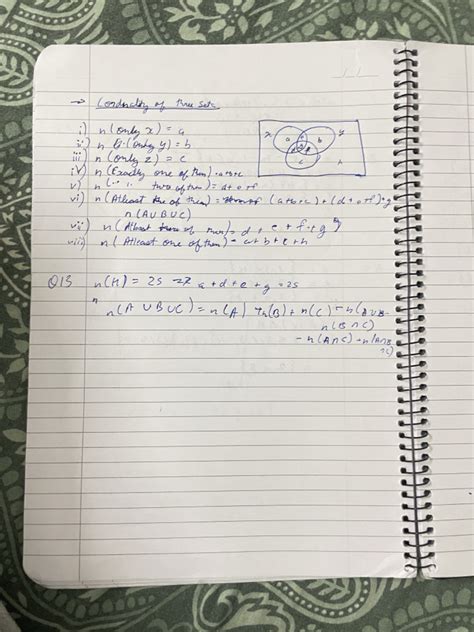 → Cardinality of three sets
i) n(only x) = a
ii) n (only y) = b
iii) n (only z) = c
iv) n (Exactly one of them) = a+b+c
v) n ( " " two of them) = d+e+f
vi) n (Atleast one of them) = (a+b+c) + (d+e+f) + g
n (A ∪ B ∪ C)
vii) n (Atleast two of them) = d + e + f + g
viii) n ( Atleast one of them) = a+b+c+h
x y
a b
c h
Q13 n(H) = 25 => a + d + e + g = 25
n
n(A ∪ B ∪ C) = n(A) + n(B) + n(C) - n(A ∪ B -
n(B ∩ C)
- n(A ∩ C) + n(A ∩ B
∩ C)